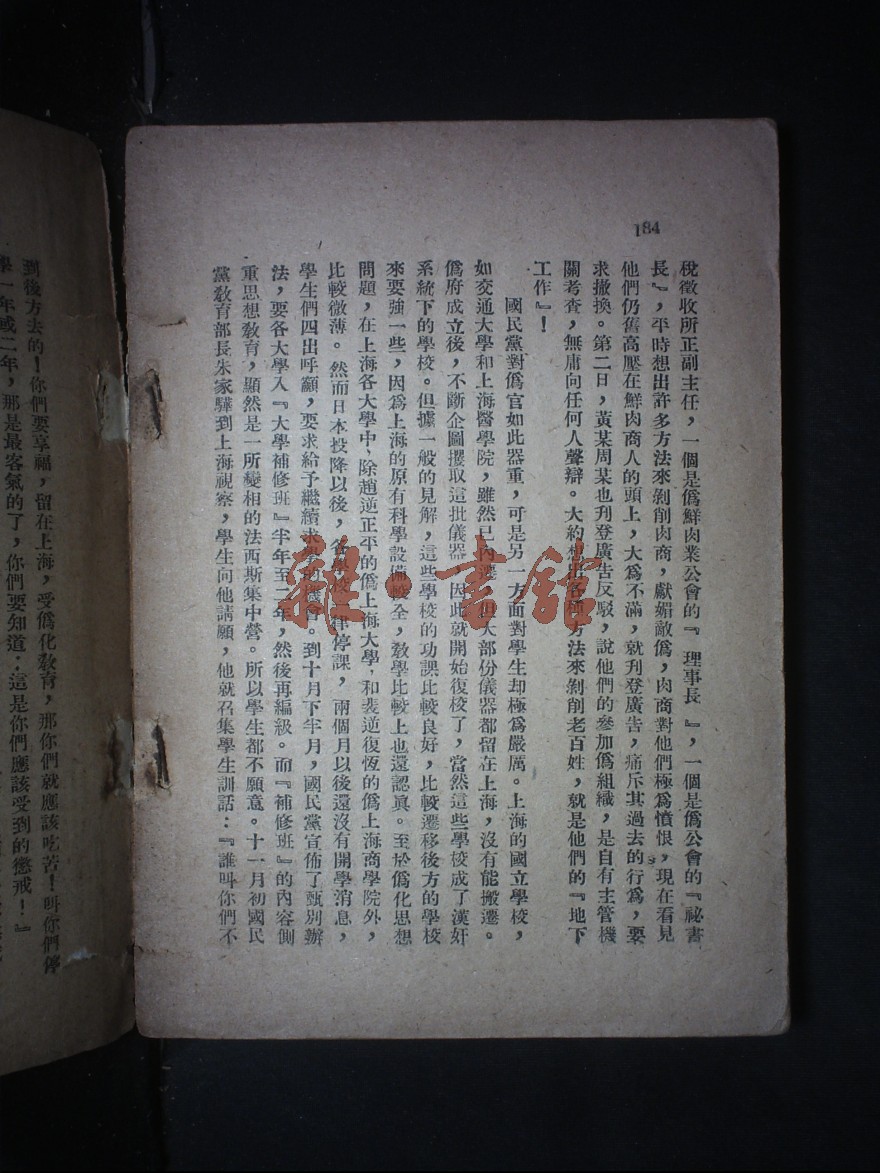 184
稅徵收所正副主任，一個是僞鮮肉業公會的『理事長』，一個是僞公會的『祕書
長』，平時想出許多方法來剝削肉商，獻媚敵僞，肉商對他們極爲憤恨，現在看見
他們仍舊高壓在鮮肉商人的頭上，大爲不滿，就刋登廣告，痛斥其過去的行爲，要
求撤換。第二日，黃某周某也刋登廣告反駁，說他們的參加僞組織，是自有主管機
關考查，無庸向任何人聲辯。大約想出各種方法來剝削老百姓，就是他們的『地下
工作』！
國民黨對僞官如此器重，可是另一方面對學生却極爲嚴厲。上海的國立學校，
如交通大學和上海醫學院，雖然已內遷，但大部份儀器都留在上海，沒有能搬遷。
僞府成立後，不斷企圖攫取這批儀器，因此就開始復校了，當然這些學校成了漢奸
系統下的學校。但據一般的見解，這些學校的功課比較良好，比較遷移後方的學校
來要強一些，因爲上海的原有科學設備較全，敎學比較上也還認眞。至於僞化思想
問題，在上海各大學中，除趙逆正平的僞上海大學，和裴逆復恆的僞上海商學院外，
比較微薄。然而日本投降以後，各學校一律停課，兩個月以後還沒有開學消息，
學生們四出呼籲，要求給予繼續求學的機會。到十月下半月，國民黨宣佈了甄別辦
法，要各大學入『大學補修班』半年至二年，然後再編級。而『補修班』的內容側
重思想敎育，顯然是一所變相的法西斯集中營。所以學生都不願意。十一月初國民
黨敎育部長朱家驊到上海視察，學生向他請願，他就召集學生訓話：『誰叫你們不
到後方去的！你們要享福，留在上海，受僞化敎育，那你們就應該吃苦！叫你們停
學一年或二年，那是最客氣的了，你們要知道：這是你們應該受到的懲戒！』
雜·書舘